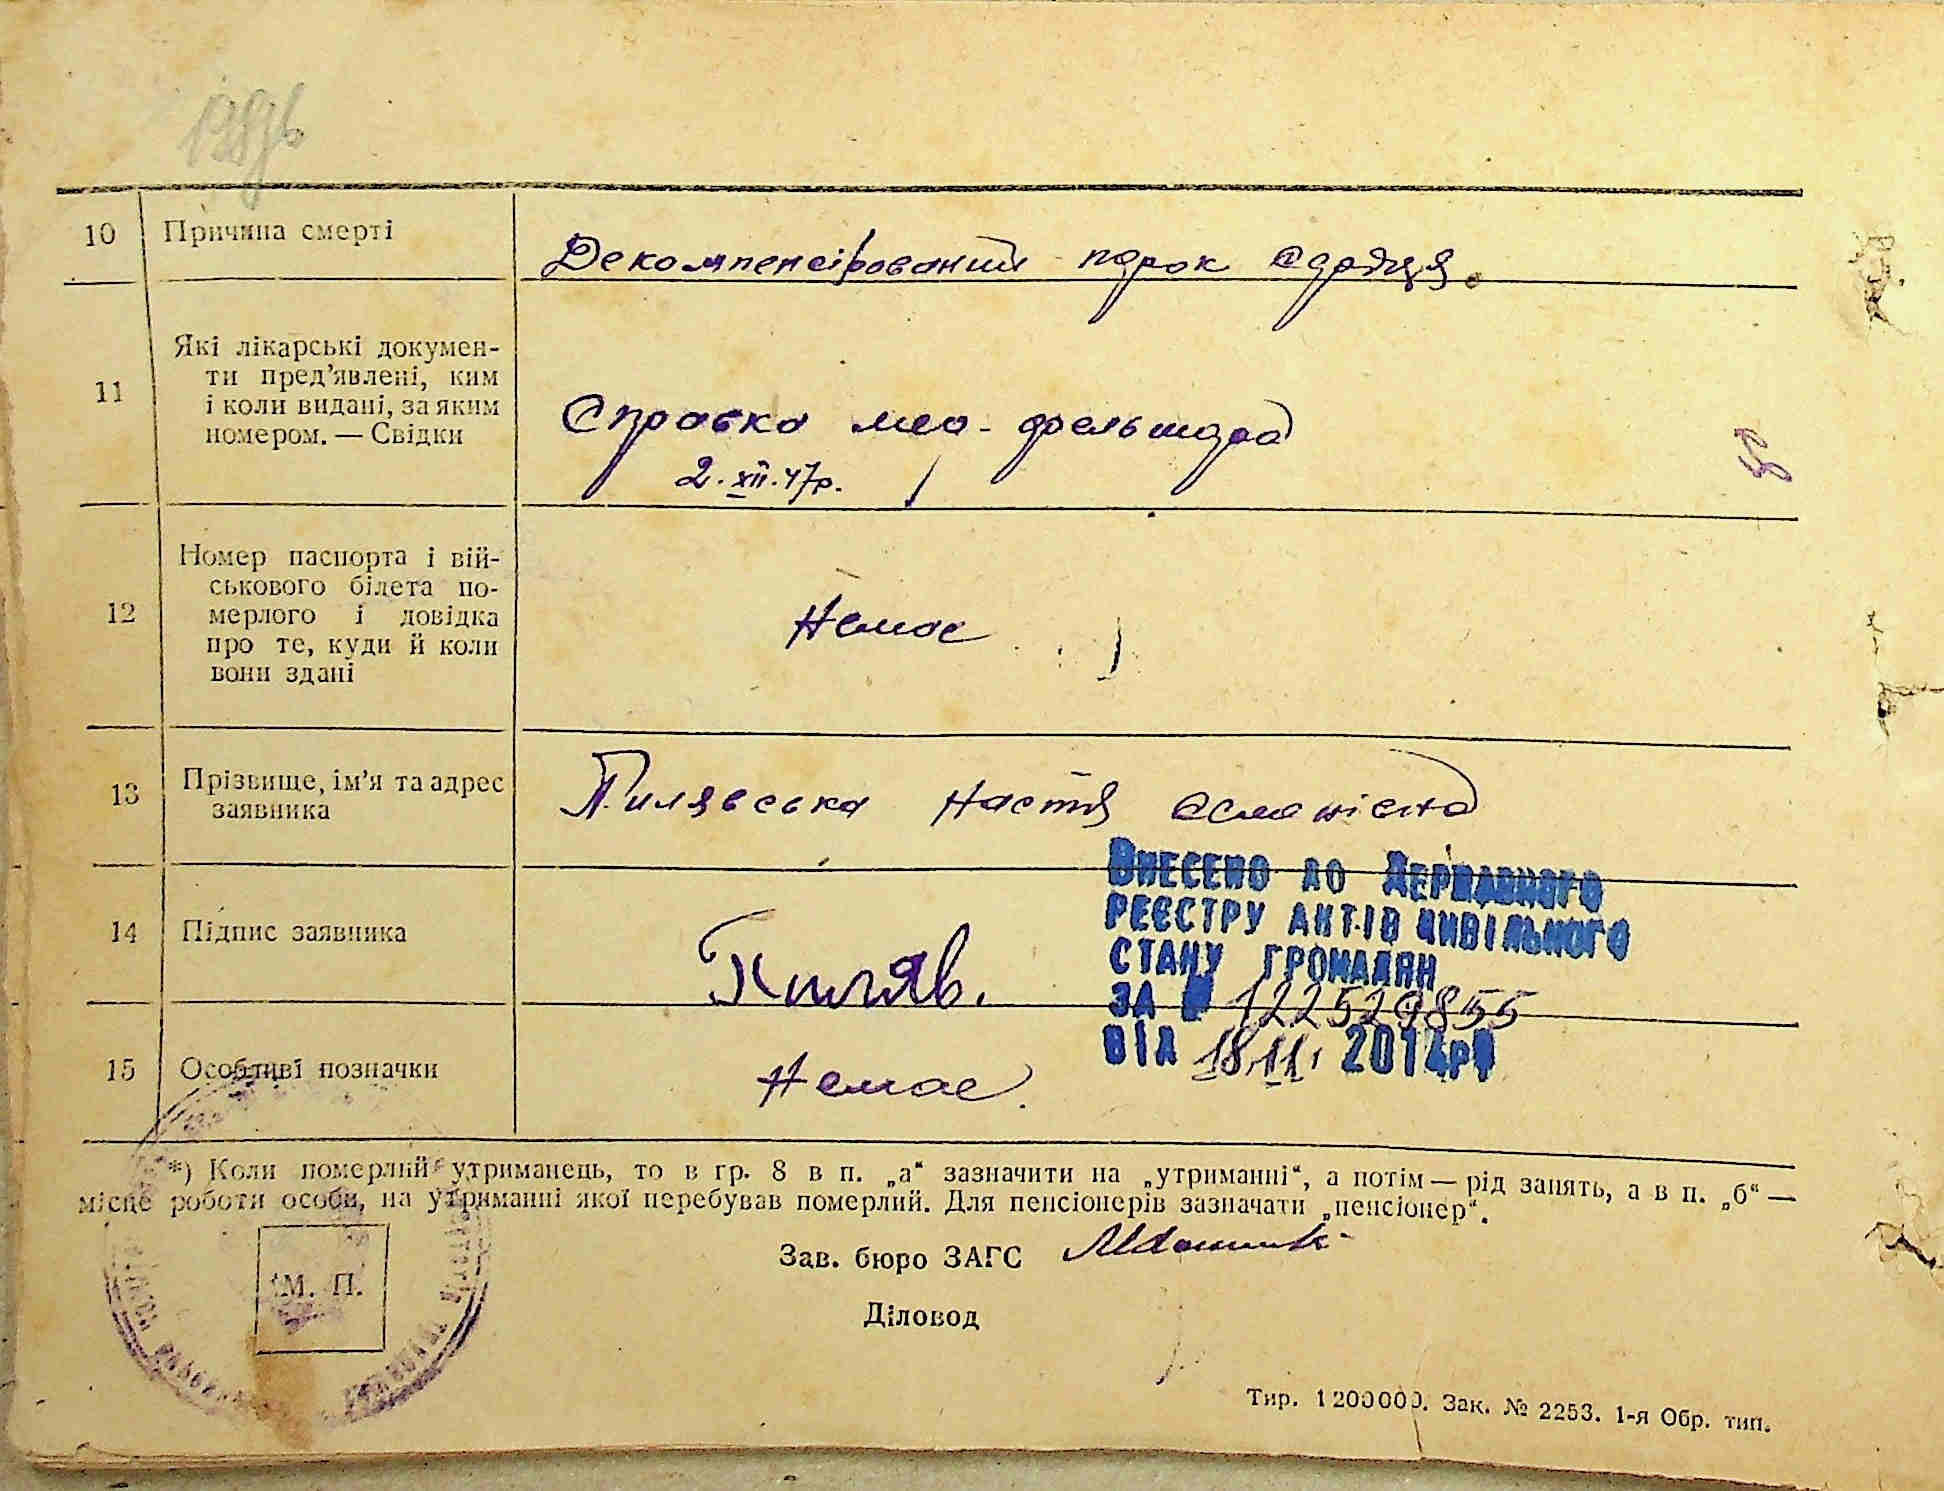 10 Причина смерті
Декомпенсірований порок сердця.
11 Які лікарські докумен-
ти пред’явлені, ким
і коли видані, за яким
номером. — Свідки
Справка мед-фельшера
2.XII.47р.
12 Номер паспорта і вій-
ськового білета по-
мерлого і довідка
про те, куди й коли
вони здані
Немає
13 Прізвище, ім’я та адрес
заявника
Пилявська Настя
14 Підпис заявника
Пиляв.
Внесено до Державного
реєстру актів цивільного
стану громадян
за № 122529855
від 18.11. 2014р
15 Особливі позначки
Немає.
*) Коли померлий утриманець, то в гр. 8 в п. „а“ зазначити на „утриманні“, а потім — рід занять, а в п. „б“ —
місце роботи особи, на утриманні якої перебував померлий. Для пенсіонерів зазначати „пенсіонер“.
М. П.
Зав. бюро ЗАГС
Діловод
Тир. 1200000. Зак. № 2253. 1-я Обр. тип.